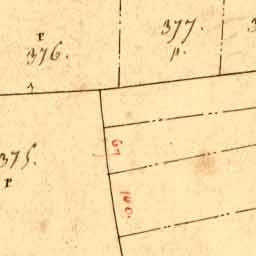 r
376.
377.
p.
375.
r
67
100.